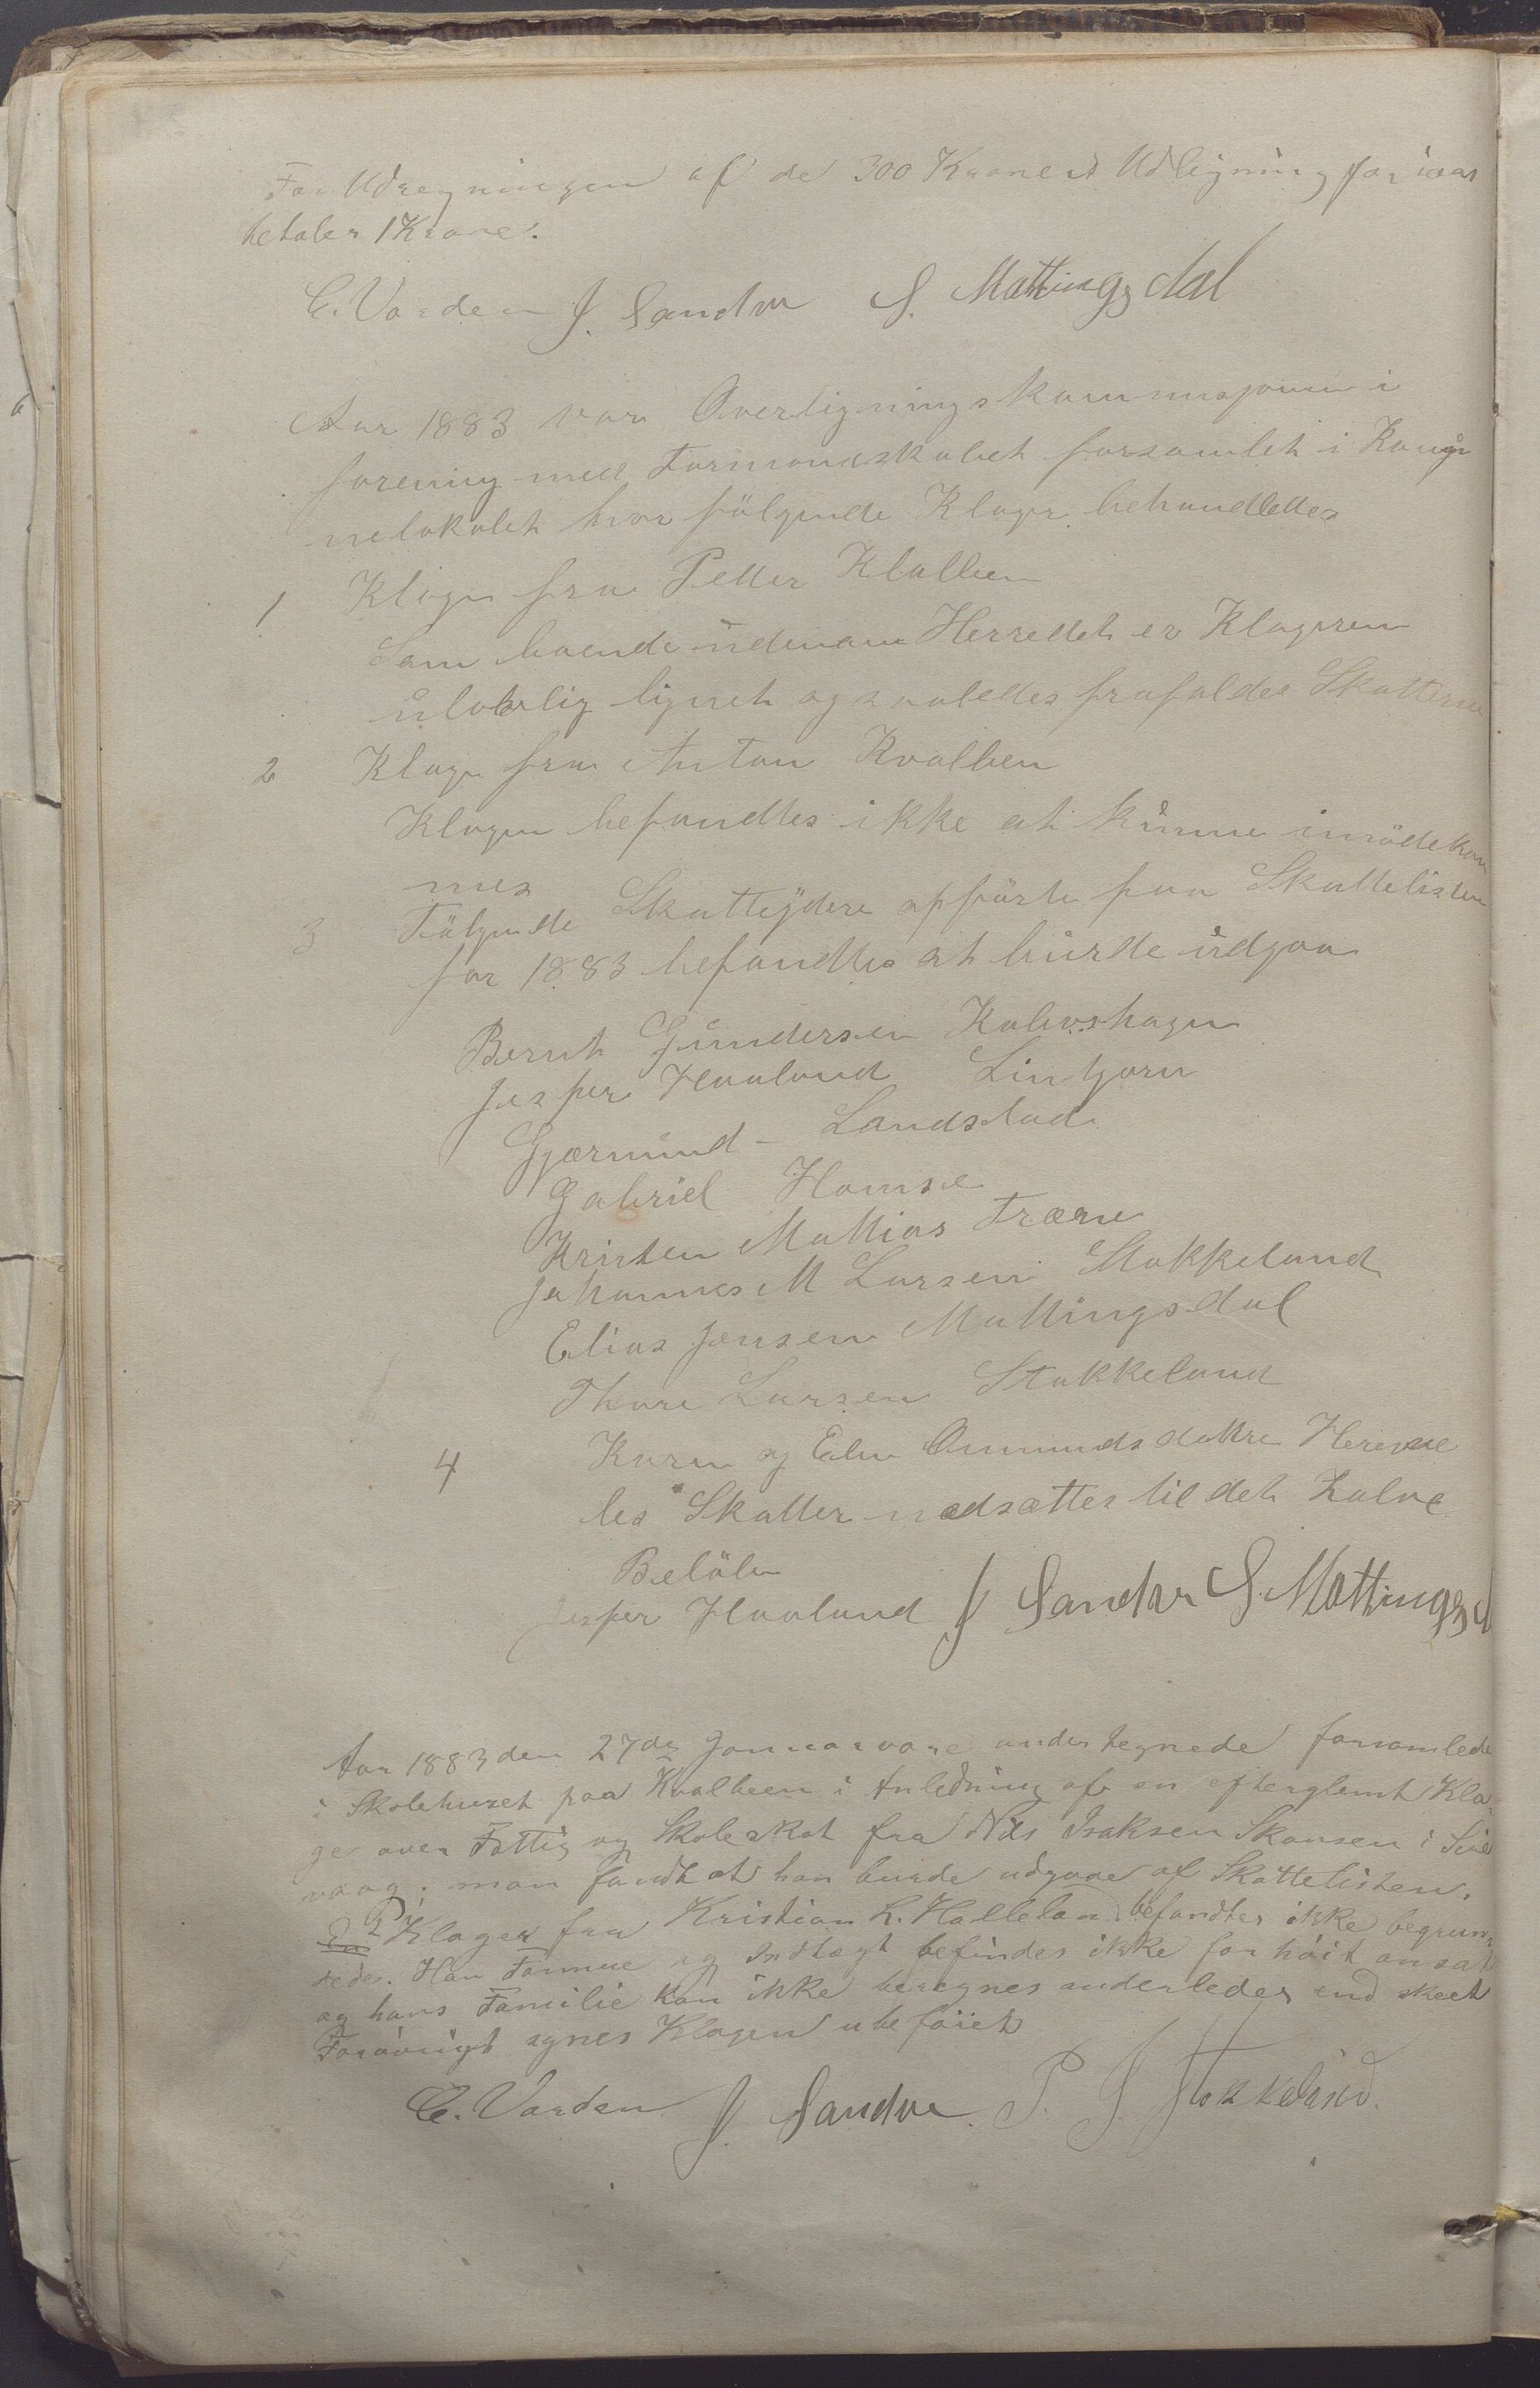 For Udregningen af de 300 Kroners Udligning for iaar
betaler 1 Krone.
C. Varden J. Sandve S. Mattingsdal
Aar 1883 var Overligningskommisjonen i
forening med Formandskabet forsamlet i
nelokalet hvor fölgende Klager behandlettes
1 Klage fra Petter Klalleen
Som boende udenom Herredet er Klageren
ulovlig lignet og saaledes frafaldes Skatterne
2 Klage fra Anton Kvalleen
Klagen befandtes ikke at kunne imödekom
mes
3 Fölgende Skatteydere opförte paa Skattelisten
for 1883 befandtes at burde udgaa
Bernt Gundersen Kalvshagen
Jesper Haaland Lintjørn
Gjermund Landstad
Gabriel Homse
Kristen Mattias Træne
Johannes M Larsen Stokkeland
Elias Jensen Mattingsdal
Thore Larsen Stokkeland
4 Karen og Eli Amundsdottre
les Skatter nedsættes til det halve
Belöb
Jesper Haaland J Sandve S. Mattingsd
Aar 1883 den 27de Januar vare undertegnede forsamlede
i Skolehuset paa Kvalbeen i Anledning af en efterglemt Kla-
ge over Fattig og Skoleskat fra Nils Isaksen Skansen i Sire
vaag; man fandt at han burde udgaae af Skattelisten.
2 Klager fra Kristian L. Halleland befandtes ikke begrun-
dede. Han Formue og Indtægt befindes ikke for höit ansat
og hans Familie kan ikke beregnes anderledes end skeet
Foröivrigt agtes Klagen ubeföiet
C. Varden J. Sandve. P. J. Stokkeland.